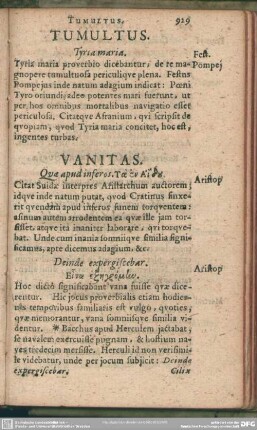 TUMULTUS. 929
TUMULTUS.
Tyria maria.
Tyria maria proverbio dicebantur, de re ma-
gnopere tumultuosa periculique plena. Festus
Pompejus inde natum adagium indicat: Pœni
Tyro oriundi, adeo potentes mari fuerunt, ut
per hos omnibus mortalibus navigatio esset
periculosa. Citatque Afranium, qvi scripsit de
qvopiam, qvod Tyria maria concitet, hoc est,
ingentes turbas.
Fest.
Pompej
VANITAS.
Quæ apud inferos.
Citat Suidæ interpres Aristarchum auctorem;
idque inde natum putat, qvod Cratinus finxe-
rit qvendam apud inferos funem torqventem:
asinum autem arrodentem ea quæ ille jam tor-
sisset. atque ita inaniter laborare, qvi torqve-
bat. Unde cum inania somniique similia signi-
ficamus, apte dicemus adagium; &
Aristop
Deinde expergiscebar.
Aristop
Hoc dicto significabant vana fuisse qvæ dice-
rentur. Hic jocus proverbialis etiam hodier-
nis temporibus familiaris est vulgo, qvoties,
qvæ memorantur, vana, somniisque similia vi-
dentur. * Bacchus apud Herculem jactabat,
se navalem exercuisse pugnam, & hostium na-
ves tredecim mersisse. Herculi id non verisimi-
le videbatur, unde per jocum subjicit: Deinde
expergiscebar.
Cilix